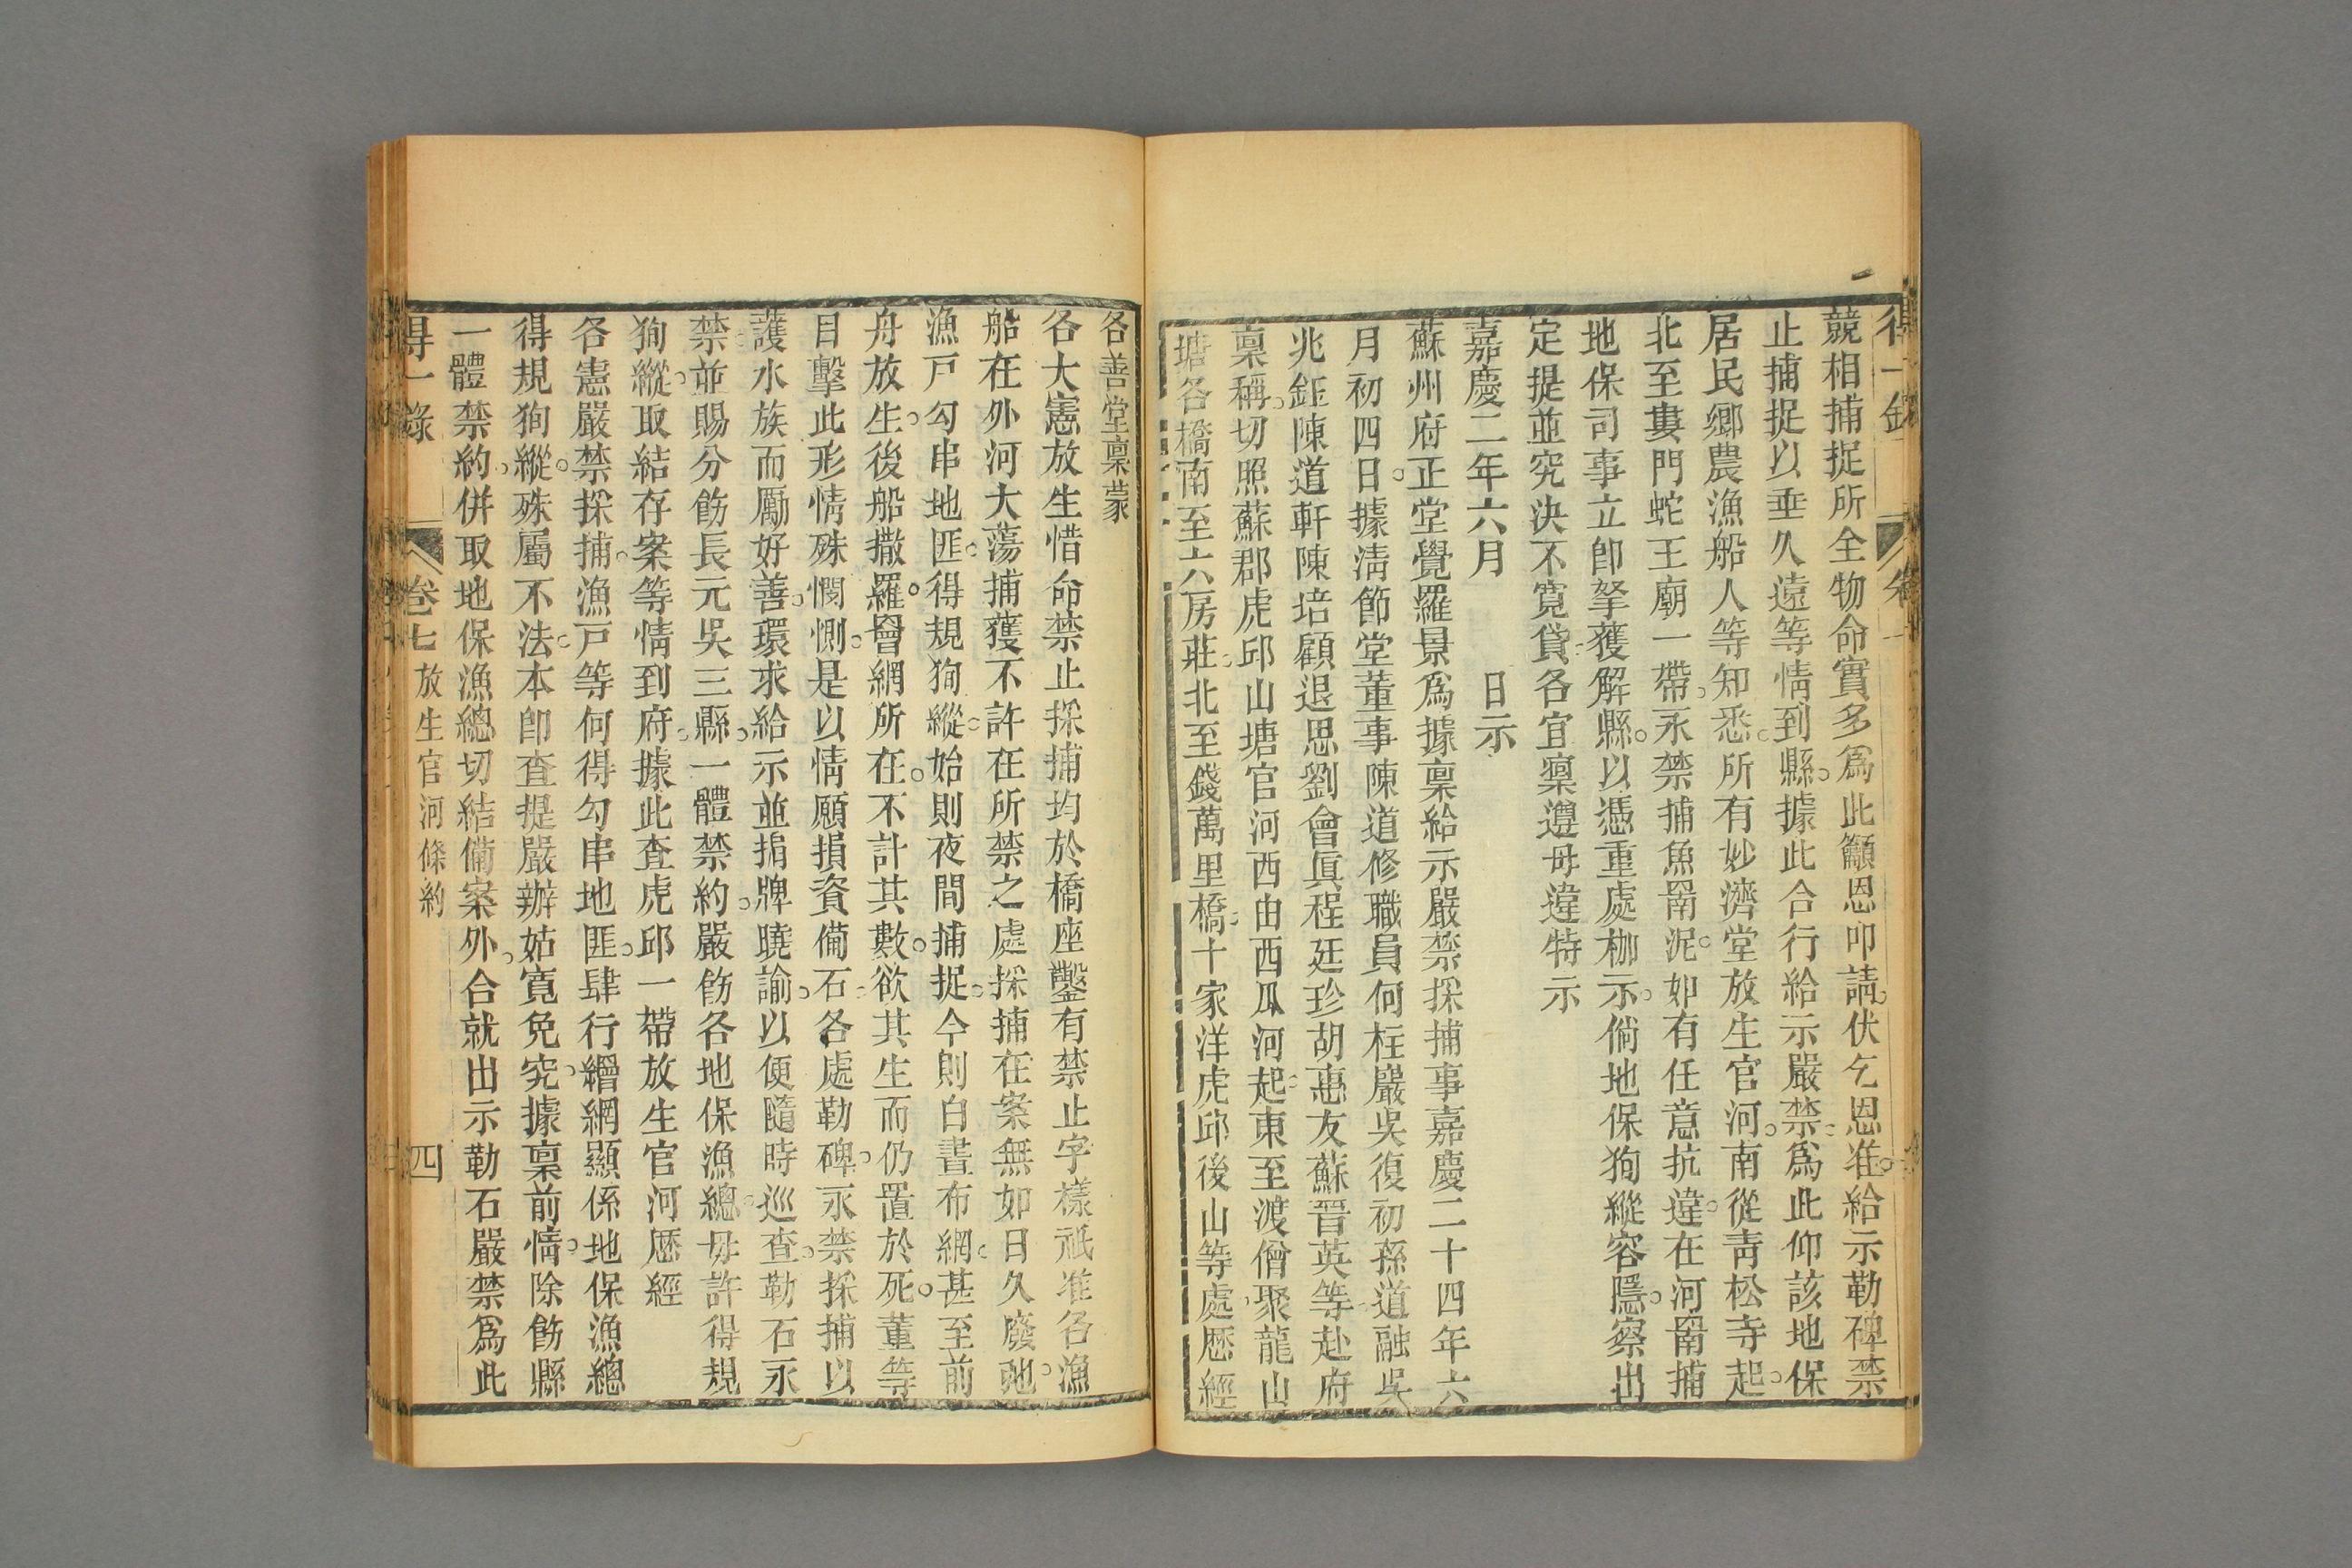 競相捕捉所全物命實多爲此籲恩叩請。伏乞恩准。給示勒碑禁
止捕捉以垂久遠等情到縣。據此合行給示嚴禁。爲此仰該地保
居民鄉農漁船人等知悉。所有妙濟堂放生官河。南從靑松寺起。
北至婁門蛇王廟一帶。永禁捕魚罱泥。如有任意抗違。在河罱捕
地保司事立卽拏獲解縣。以憑重處枷示。倘地保狥縱容隱。察出
定提並究決不寬貸。各宜凜遵毋違特示
嘉慶二年六月　　日示
蘇州府正堂覺羅景爲據稟給示嚴禁採捕事嘉慶二十四年六
月初四日。據淸節堂董事陳道修職員何柱嚴吳復初孫道融吳
兆鈺陳道軒陳培顧退思劉會眞程廷珍胡惠友蘇晉英等赴府
稟稱。切照蘇郡虎邱山塘官河西由西瓜河起。東至渡僧聚龍山
塘各橋南至六房莊。北至錢萬里橋。十家洋虎邱後山等處。歷經
各善堂稟蒙
各大憲放生惜命禁止採捕均於橋座鑿有禁止字樣祇准各漁
船在外河大蕩捕獲不許在所禁之處採捕在案無如日久廢弛。
漁戸勾串地匪。得規狥縱。始則夜間捕捉。今則白晝布網。甚至前
舟放生。後船撒羅。罾網所在。不計其數。欲其生而仍置於死。董等
目擊此形情殊憫惻。是以情願損資備石。各處勒碑。永禁採捕以
護水族而勵好善。環求給示並揭牌曉諭。以便隨時巡查。勒石永
禁並賜分飭長元吳三縣。一體禁約。嚴飭各地保漁總。毋許得規
狥縱。取結存案等情到府。據此查虎邱一帶放生官河歷經
各憲嚴禁採捕。漁戸等何得勾串地匪。肆行繒網顯係地保漁總
得規狥縱。殊屬不法。本卽查提嚴辦姑寬免究。據稟前情。除飭縣
一體禁約。併取地保漁總切結備案外。合就出示勒石嚴禁爲此
得一錄　卷七　放生官河條約　四